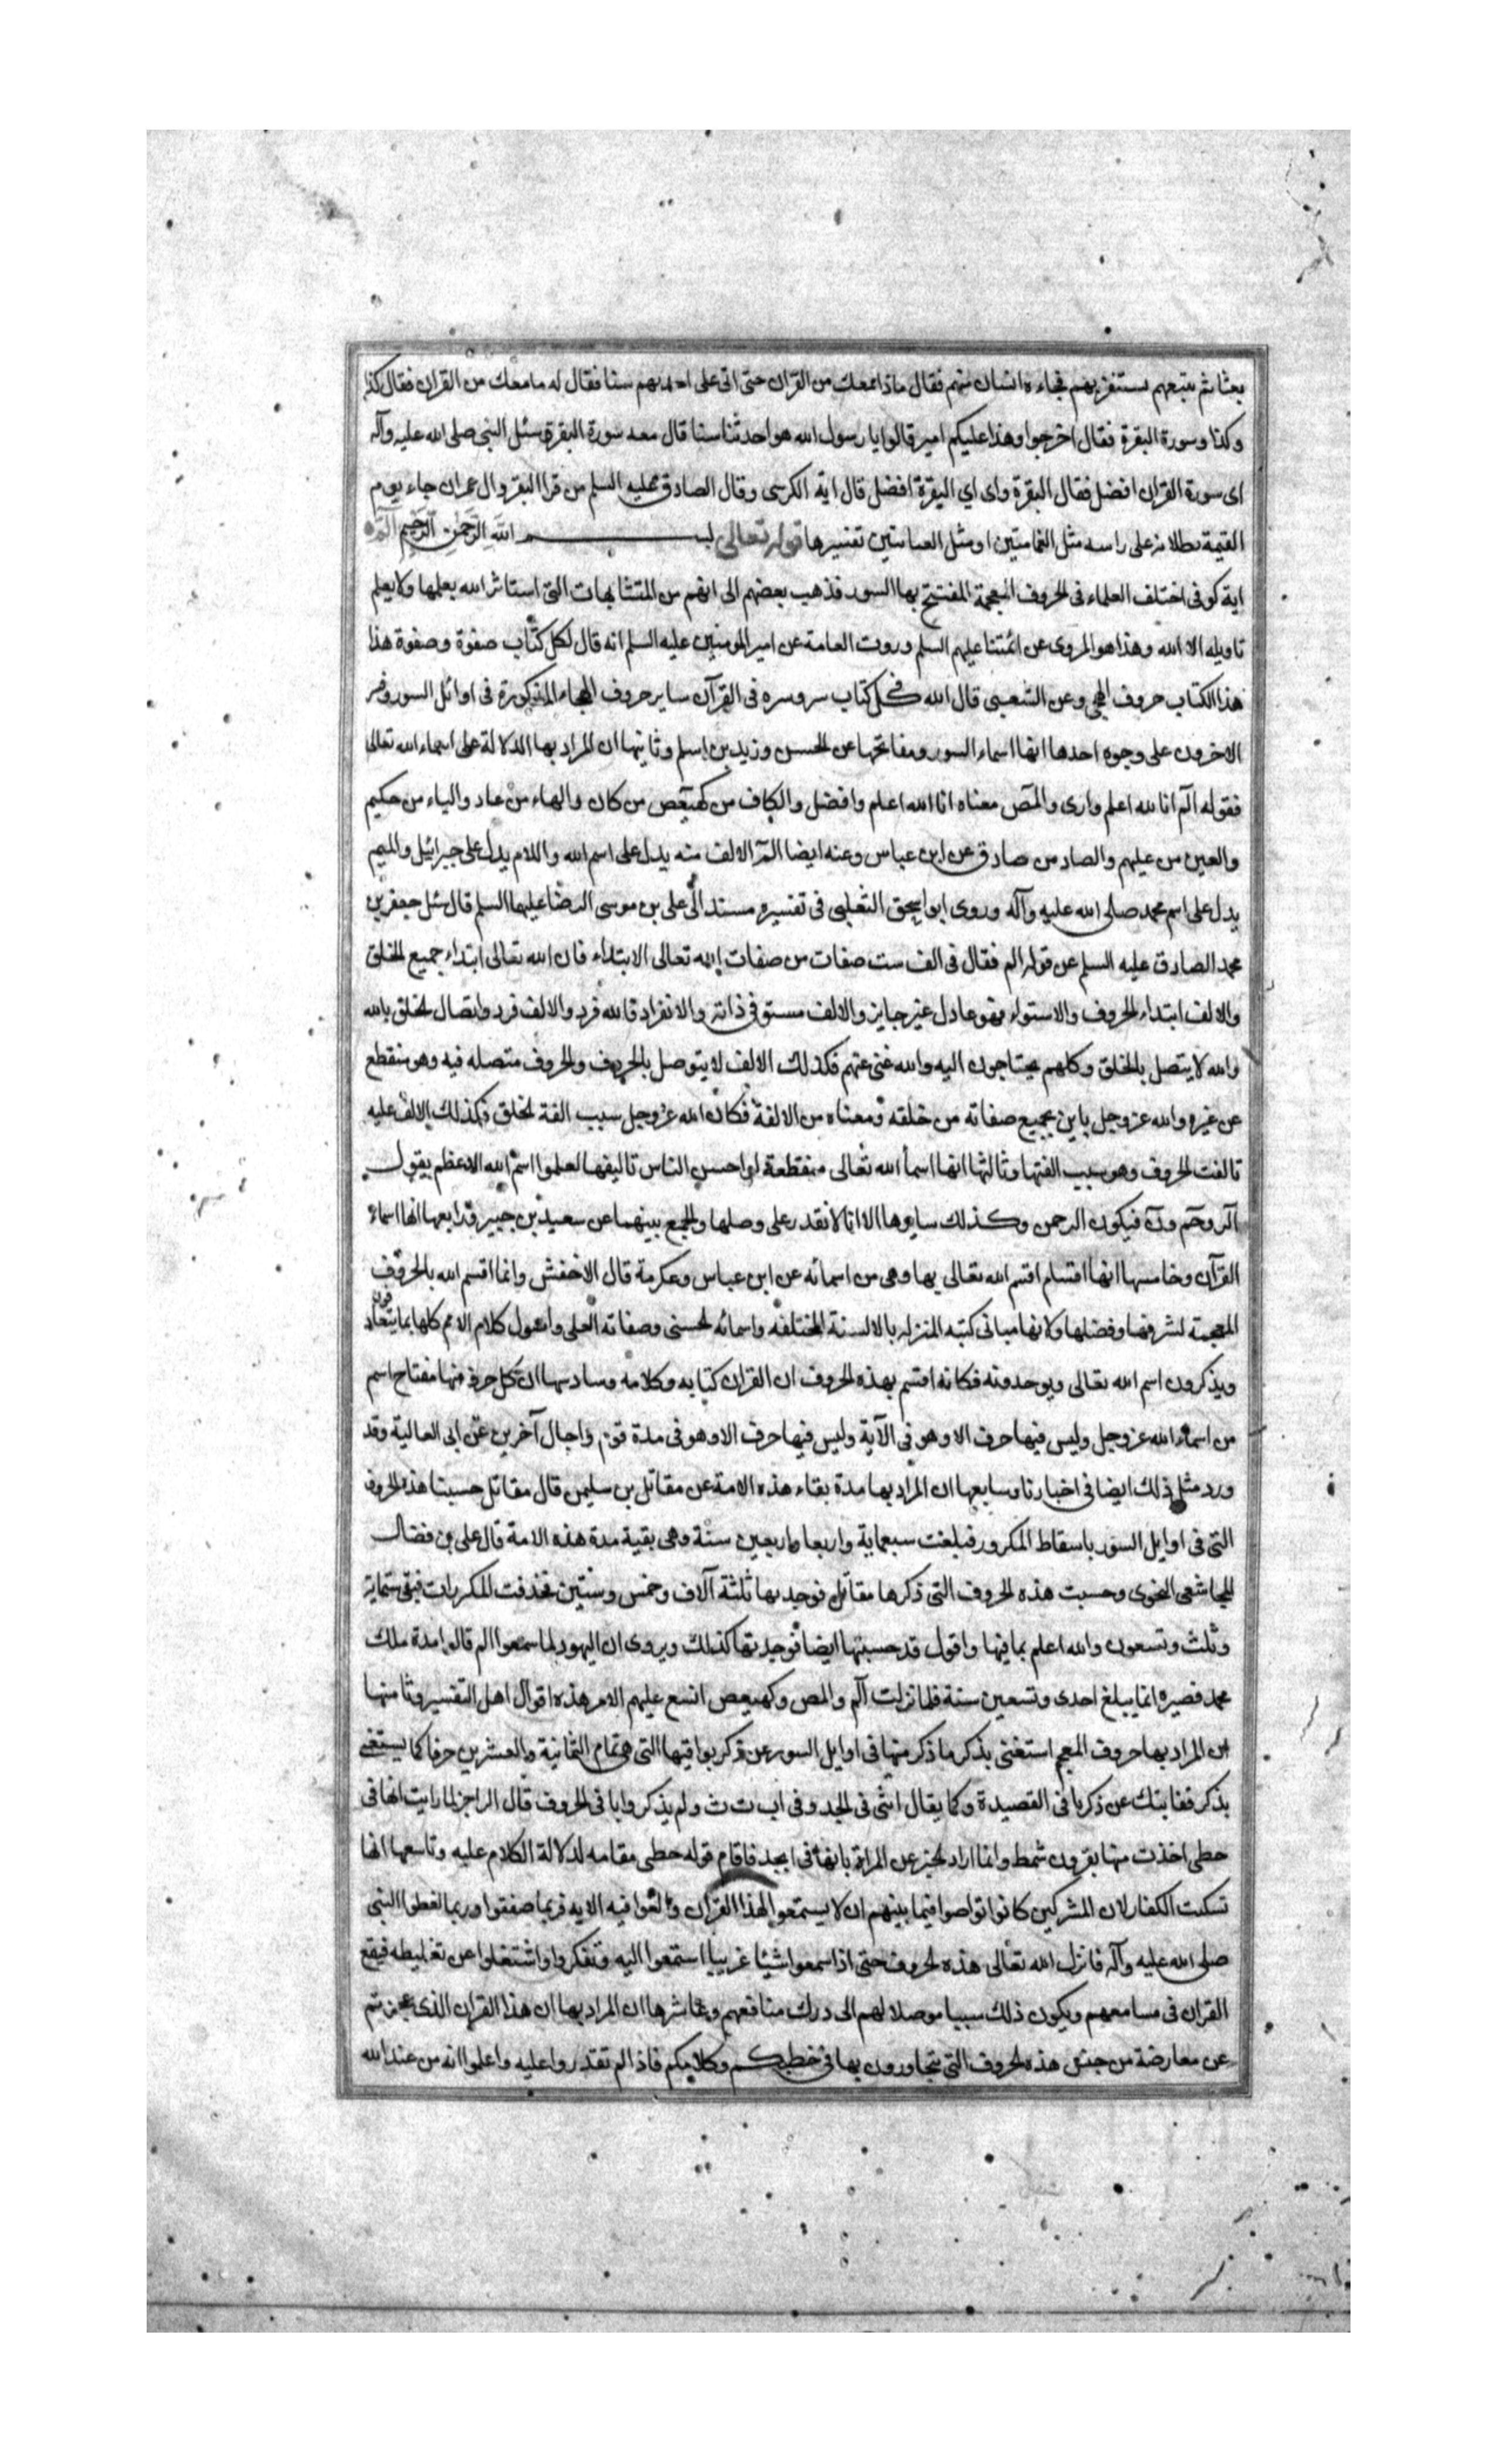 بعثا ثم يتبعهم يستقرئهم فجاءه انسان منهم فقال ماذا معك من القران حتى اتى على احدثهم سنا فقال له ما معك من القران فقال كذا
وكذا وسورة البقرة فقال اخرجوا وهذا عليكم امير قالوا يا رسول الله هو احدثنا سنا قال معه سورة البقرة سئل النبي صلى الله عليه وآله
اى سورة القران افضل فقال البقرة واى اي البقرة افضل قال اية الكرسى وقال الصادق عليه السلم من قرا البقر وال عمران جاء يوم
القيمة تظلانه على راسه مثل الغمامتين او مثل العباتين تفسيرها قوله تعالى بسم الله الرحمن الرحيم الم
اية كوفى اختلف العلماء فى الحروف المعجمة المفتتح بها السور فذهب بعضهم الى انهم من المتشابهات التى استاثر الله بعلمها ولا يعلم
تاويله الا الله وهذا هو المروى عن ائمتنا عليهم السلم وروت العامة عن امير المومنين عليه السلم انه قال لكل كتاب صفوة وصفوة هذا
هذا الكتاب حروف التهجي وعن الشعبى قال الله فى كل كتاب سر وسره فى القرآن ساير حروف الهجاء المذكورة فى اوائل السور وفسر
الاخرون على وجوه احدها انها اسماء السور ومفاتحها عن الحسن وزيد بن اسلم وثانيها ان المراد بها الدلالة على اسماء الله تعالى
فقوله الم انا لله اعلم وارى والمص معناه انا الله اعلم وافضل والكاف من كهيعص من كان والهاء من هاد والياء من حكيم
والعين من عليهم والصاد من صادق عن ابن عباس وعنه ايضا الم الالف منه يدل على اسم الله واللام يدل على جبرائيل والميم
يدل على اسم محمد صلى الله عليه وآله وروى ابو اسحق الثعلبى فى تفسيره مسندا الى على بن موسى الرضا عليهما السلم قال سئل جعفر بن
محمد الصادق عليه السلم عن قوله الم فقال فى الف ست صفات من صفات الله تعالى الابتداء فان الله تعالى ابتداء جميع الخلق
والالف ابتداء الحروف والاستواء فهو عادل غير جاير والالف مستو فى ذاته والانفراد فالله فرد والالف فرد واتصال الخلق بالله
والله لا يتصل بالخلق وكلهم يحتاجون اليه والله غنى عنهم فكذلك الالف لا يتوصل بالحروف والحروف متصله فيه وهو منقطع
عن غيره والله عز وجل باين بجميع صفاته من خلقه ومعناه من الالفة فكان الله عز وجل سبب الفة الخلق فكذلك الالف عليه
تالفت الحروف وهو سبب الفتها وثالثها انها اسما الله تعالى منقطعة لو احسن الناس تاليفها لعلموا اسم الله الاعظم يقول
الر وحم ون فيكون الرحمن وكذلك سايرها الا انا لا نقدر على وصلها والجمع بينهما عن سعيد بن جبير ورابعها انها اسماء
القرآن وخامسها انها اقسام اقسم الله تعالى بها وهى من اسمائه عن ابن عباس وعكرمة قال الاخفش وانما اقسم الله بالحروف
المعجمة لشرفها وفضلها ولانها مبانى كتبه المنزله بالالسنة المختلفه واسمائه الحسنى وصفاته العلى واصول كلام الامم كلها بما يتعارفون
ويذكرون اسم الله تعالى ويوحدونه فكانه اقسم بهذه الحروف ان القران كتابه وكلامه وسادسها ان كل حرف منها مفتاح اسم
من اسماء الله عز وجل وليس فيها حرف الا وهو فى الآية وليس فيها حرف الا وهو فى مدة قوم واجال آخرين عن ابى العالية وقد
ورد مثل ذلك ايضا فى اخبارنا وسابعها ان المراد بها مدة بقاء هذه الامة عن مقاتل بن سليمن قال مقاتل حسبنا هذه الحروف
التى فى اوايل السور باسقاط المكرور فبلغت سبعماية واربعا واربعين سنة وهى بقية مدة هذه الامة قال على بن فضال
المجاشعى النحوى وحسبت هذه الحروف التى ذكرها مقاتل فوجد بها ثلثة آلاف وخمس وستين فحذفت المكررات فبقى ستماية
وثلث وتسعون والله اعلم بما فيها واقول قد حسبتها ايضا فوجدتها كذلك ويروى ان اليهود لما سمعوا الم قالوا مدة ملك
محمد قصيرة انما يبلغ احدى وتسعين سنة فلما نزلت الم والمص وكهيعص اتسع عليهم الامر هذه اقوال اهل التفسير وثامنها
ان المراد بها حروف المعجم استغنى بذكر ما ذكر منها فى اوايل السور عن ذكر بواقيها التى هى تمام الثمانية والعشرين حرفا كما يستغنى
بذكر قفا نبك عن ذكر باقى القصيدة وكما يقال اثنى فى ابجد وفى اب ت ث ولم يذكروا باقى الحروف قال الراجز لما رايت انها فى
حطى اخذت منها بقرون شمط وانما اراد الخبر عن المراة بانها فى ابجد فاقام قوله حطى مقامه لدلالة الكلام عليه وتاسعها انها
تسكت الكفار لان المشركين كانوا تواصوا فيما بينهم ان لا يستمعوا لهذا القران والغوا فيه الايه فربما صفقوا وربما لغطوا النبى
صلى الله عليه وآله فانزل الله تعالى هذه الحروف حتى اذا سمعوا شيئا غريبا استمعوا اليه وتفكروا واشتغلوا عن تغليطه فيقع
القران فى مسامعهم ويكون ذلك سببا موصلا لهم الى درك منافعهم وعاشرها ان المراد بها ان هذا القران الذى عجزتم
عن معارضة من جنس هذه الحروف التى تتحاورون بها فى خطبكم وكلامكم فاذا لم تقدروا عليه واعلموا انه من عند الله